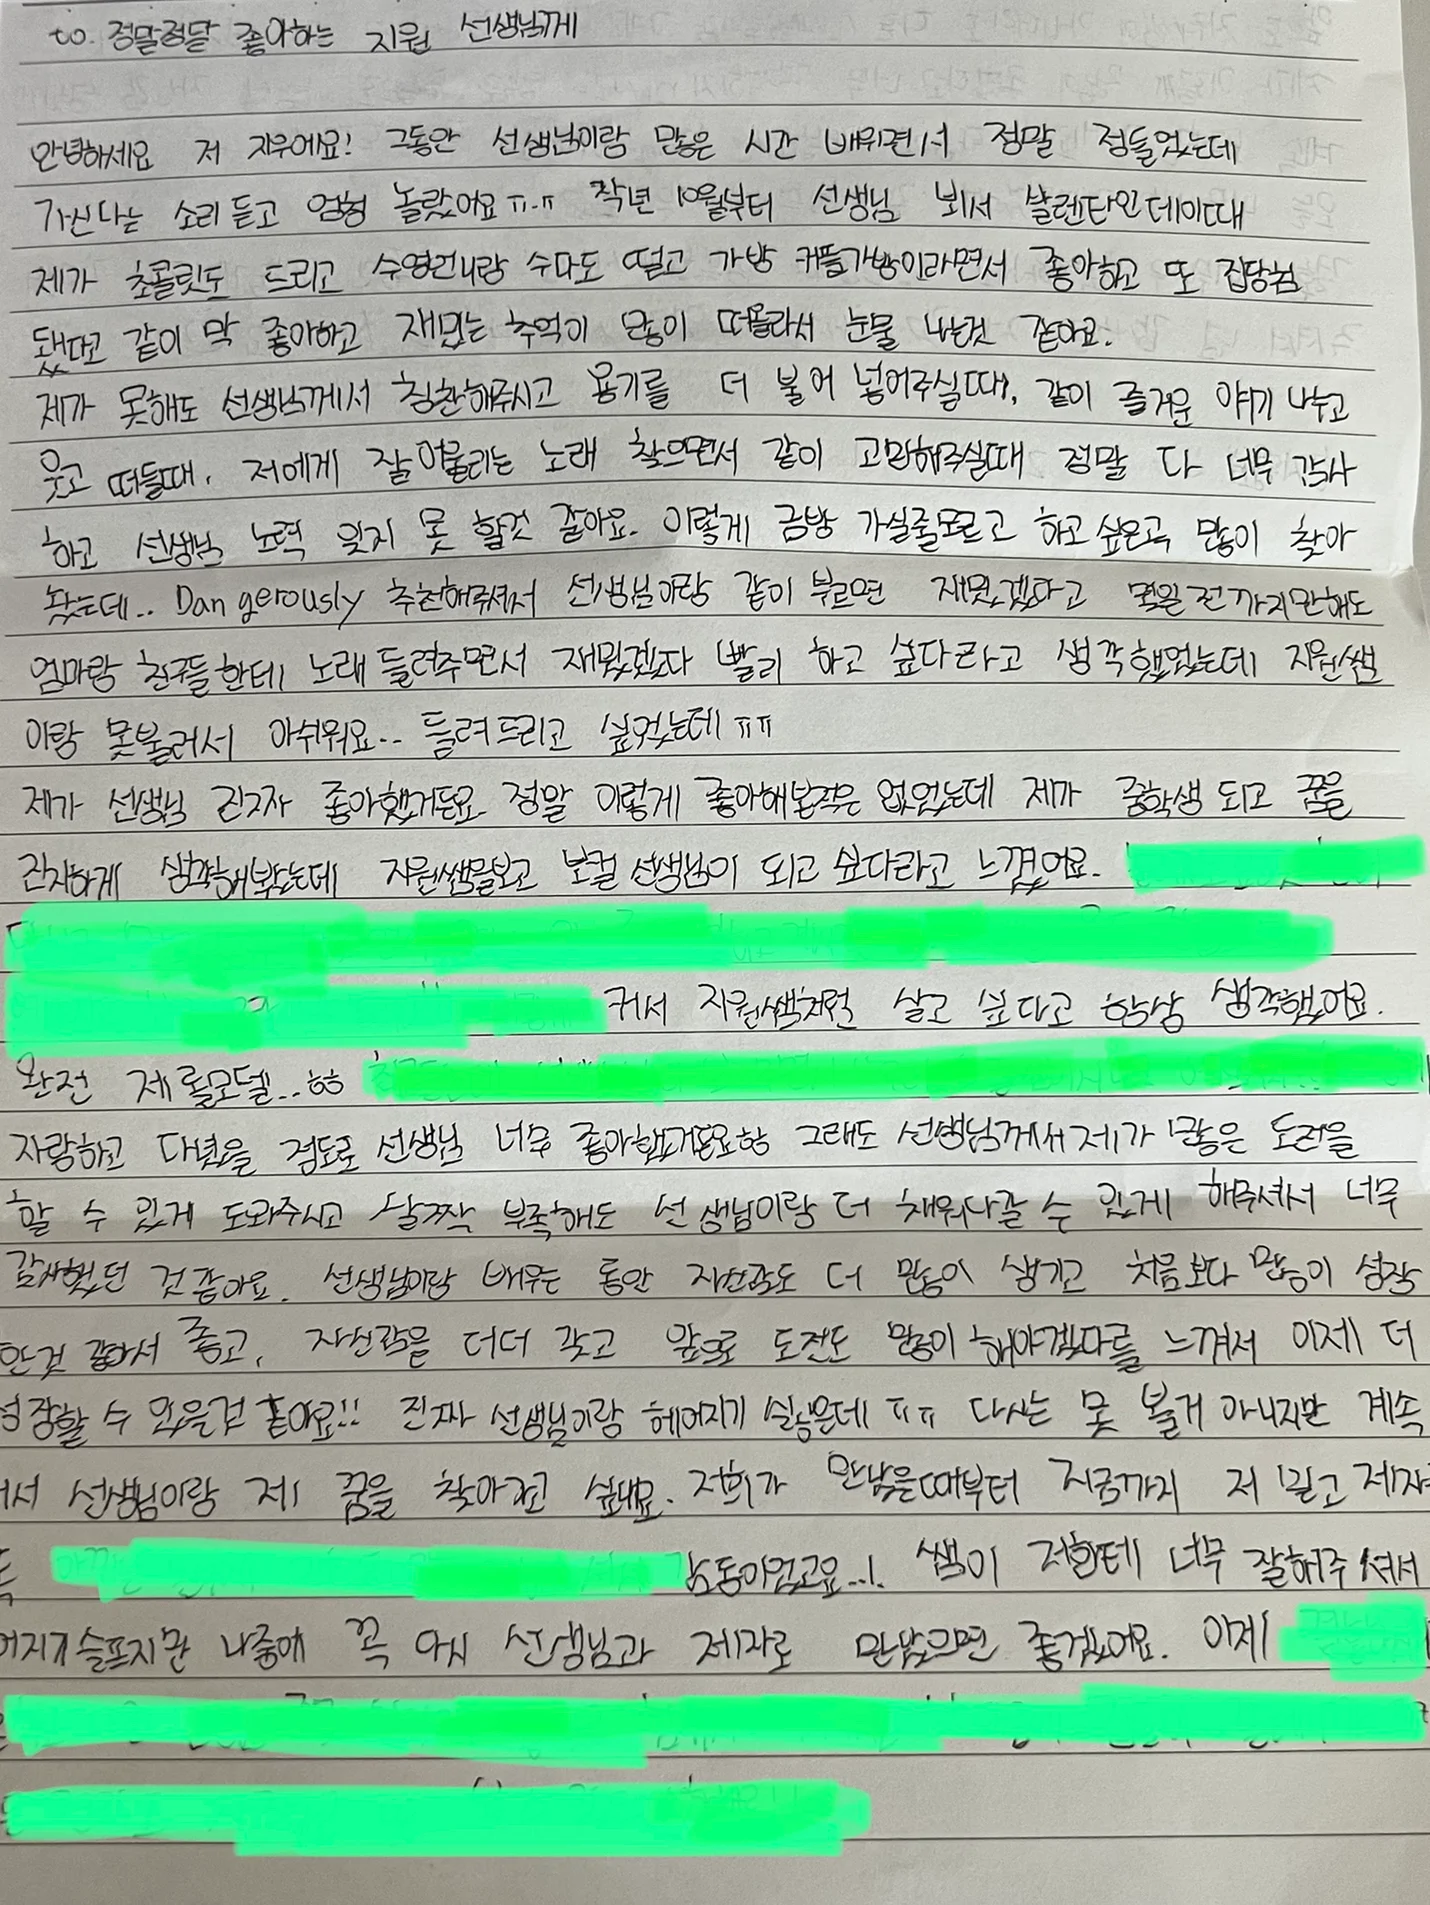 to. 정말정말 좋아하는 지원 선생님께
안녕하세요 저 지우에요! 그동안 선생님이랑 많은 시간 배워면서 정말 정들었는데
가신다는 소리 듣고 엄청 놀랐어요ㅠㅠ 작년 10월부터 선생님 봬서 발렌타인데이때
제가 초콜릿도 드리고 수영언니랑 수다도 떨고 가방 커플가방이라면서 좋아하고 또 집당첨
됐다고 같이 막 좋아하고 재밌는 추억이 많이 떠올라서 눈물 나는것 같아요.
제가 못해도 선생님께서 칭찬해주시고 용기를 더 불어 넣어주실때, 같이 즐거운 얘기 나누고
웃고 떠들때, 저에게 잘어울리는 노래 찾으면서 같이 고민해주실때 정말 다 너무 감사
하고 선생님 노력 잊지 못 할것 같아요. 이렇게 금방 가실줄모르고 하고싶은곡 많이 찾아
놨는데.. Dangerously 추천해주셔서 선생님이랑 같이 부르면 재밌겠다고 몇일전까지만해도
엄마랑 친구들한테 노래 들려주면서 재밌겠다 빨리 하고 싶다라고 생각했었는데 지원쌤
이랑 못불러서 아쉬워요.. 들려드리고 싶었는데ㅠㅠ
제가 선생님 진짜 좋아했거든요 정말 이렇게 좋아해본적은 없었는데 제가 중학생 되고 꿈을
진지하게 생각해봤는데 지원쌤을보고 보컬선생님이 되고 싶다라고 느꼈어요.
커서 지원쌤처럼 살고 싶다고 항상 생각했어요.
완전 제 롤모델..ㅎㅎ
자랑하고 다녔을 정도로 선생님 너무 좋아했거든요ㅎㅎ 그래도 선생님께서 제가 많은 도전을
할 수 있게 도와주시고 살짝 부족해도 선생님이랑 더 채워나갈 수 있게 해주셔서 너무
감사했던 것같아요. 선생님이랑 배우는 동안 자신감도 더 많이 생기고 처음보다 많이 성장
한것 같아서 좋고, 자신감을 더더 갖고 앞으로 도전도 많이 해야겠다를 느껴서 이제 더
성장할 수 있을것 같아요!! 진짜 선생님이랑 헤어지기 싫은데ㅠㅠ 다시는 못 볼거 아니지만 계속
서 선생님이랑 제 꿈을 찾아가고 싶네요. 저희가 만났을때부터 지금까지 저 믿고 제자
감동이었고요..! 쌤이 저한테 너무 잘해주셔서
어지기슬프지만 나중에 꼭 다시 선생님과 제자로 만났으면 좋겠어요. 이제